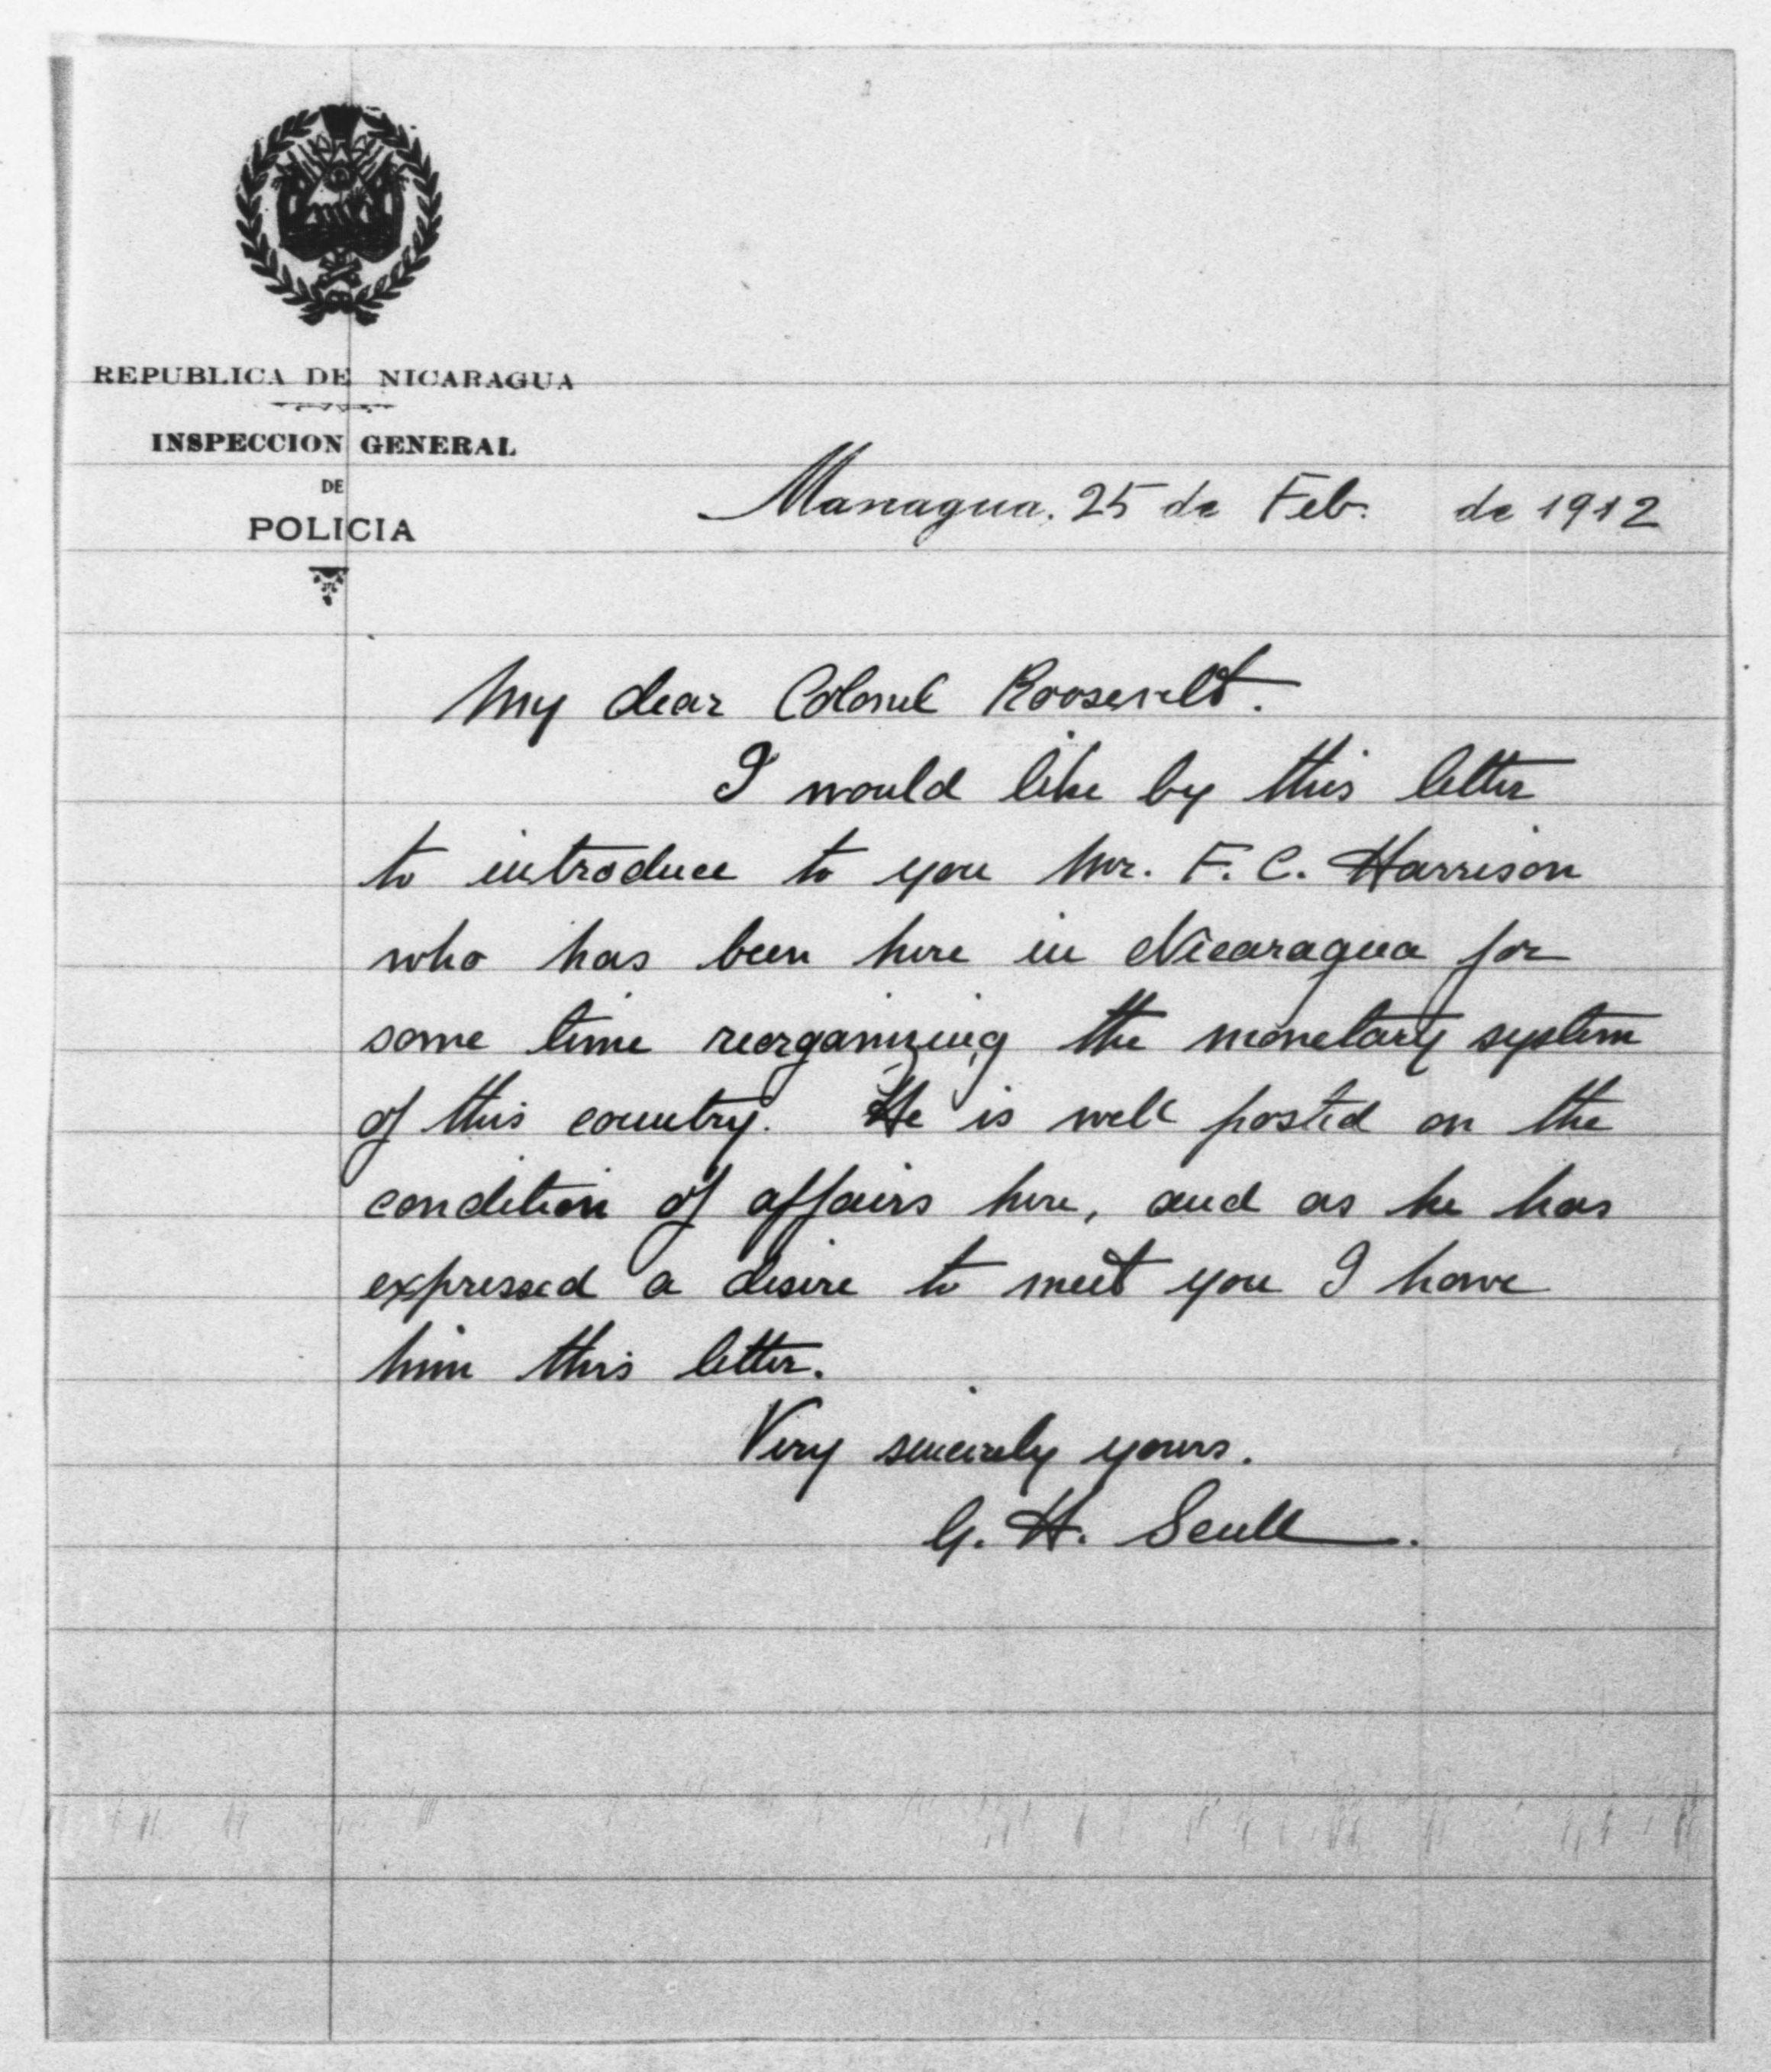 REPUBLICA DE NICARAGUA
INSPECCION GENERAL
DE
POLICIA
Managua, 25 de Feb. de 1912
My dear Colonel Roosevelt.
I would like by this letter
to introduce to you Mr. F. C. Harrison
who has been here in Nicaragua for
some time reorganizing the monetary system
of this country. He is well posted on the
condition of affairs here, and as he has
expressed a desire to meet you I have
him this letter.
Very sincerely yours.
G. H. Scull.